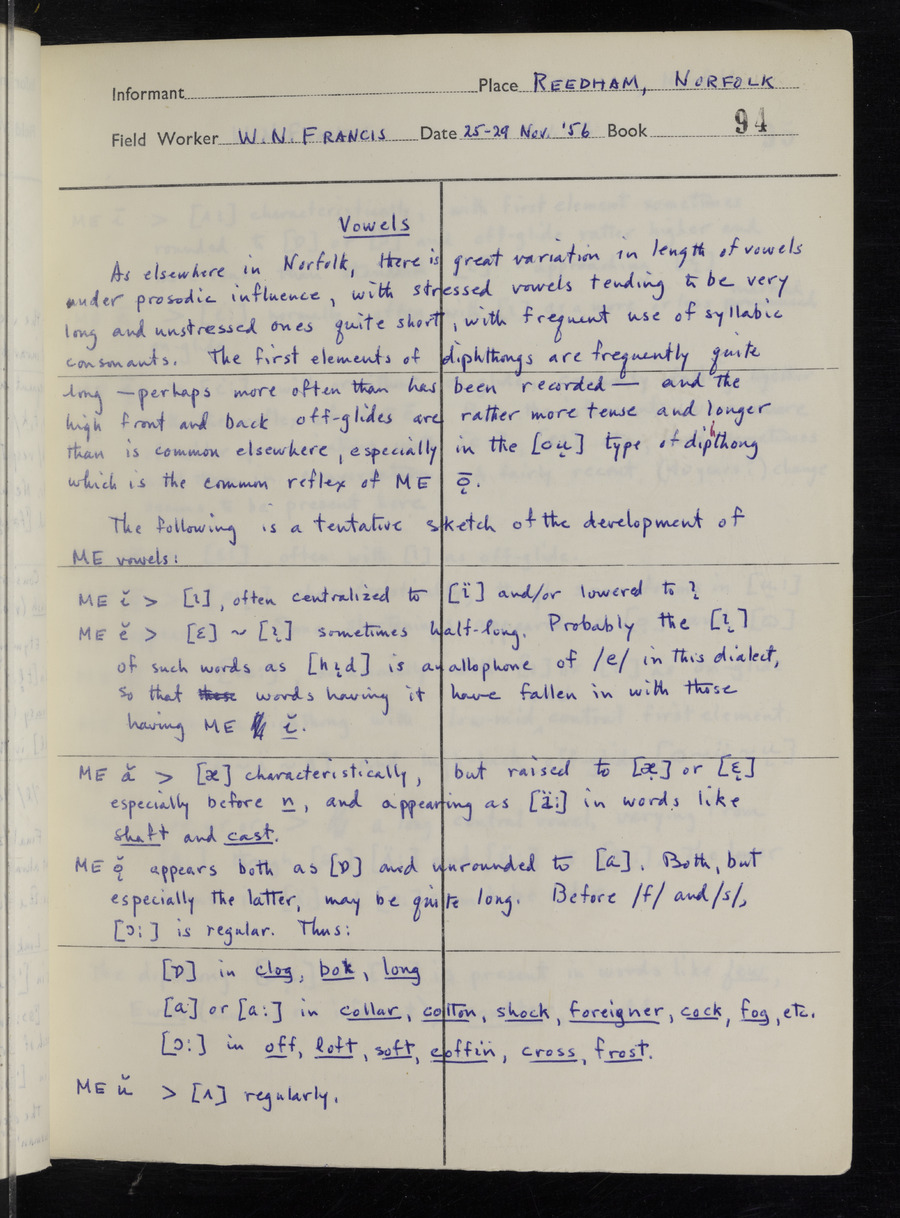 Informant Place REEDHAM, NORFOLK
Field Worker W. N. FRANCIS Date 25-29 Nov. '56 Book 94
Vowels
As elsewhere in Norfolk, there is great variation in length of vowels
under prosodic influence, with stressed vowels tending to be very
long and unstressed ones quite short, with frequent use of syllabic
consonants. The first elements of diphthongs are frequently quite
long — perhaps more often than has been recorded — and the
high front and back off-glides are rather more tense and longer
than is common elsewhere, especially in the [ɔu̜] type of dipthong
which is the common reflex of ME ǭ.
The following is a tentative sketch of the development of
ME vowels:
ME ĭ > [ɩ], often centralized to [ï] and/or lowered to ɩ̞
ME ĕ > [ɛ] ~ [ɩ̞] sometimes half-long. Probably the [ɩ̞]
of such words as [hɩ̞d] is an allophone of /e/ in this dialect,
so that these words having it have fallen in with those
having ME ĭ.
ME ă > [æ] characteristically, but raised to [æ̝] or [ɛ̞]
especially before n, and appearing as [ä:] in words like
shaft and cast.
ME ǫ̆ appears both as [ɒ] and unrounded to [ɑ]. Both, but
especially the latter, may be quite long. Before /f/ and /s/,
[ɔ:] is regular. Thus:
[ɒ] in clog, bok, long
[ɑ] or [ɑ:] in collar, cotton, shock, foreigner, cock, fog, etc.
[ɔ:] in off, loft, soft, coffin, cross, frost.
ME ŭ > [ʌ] regularly.